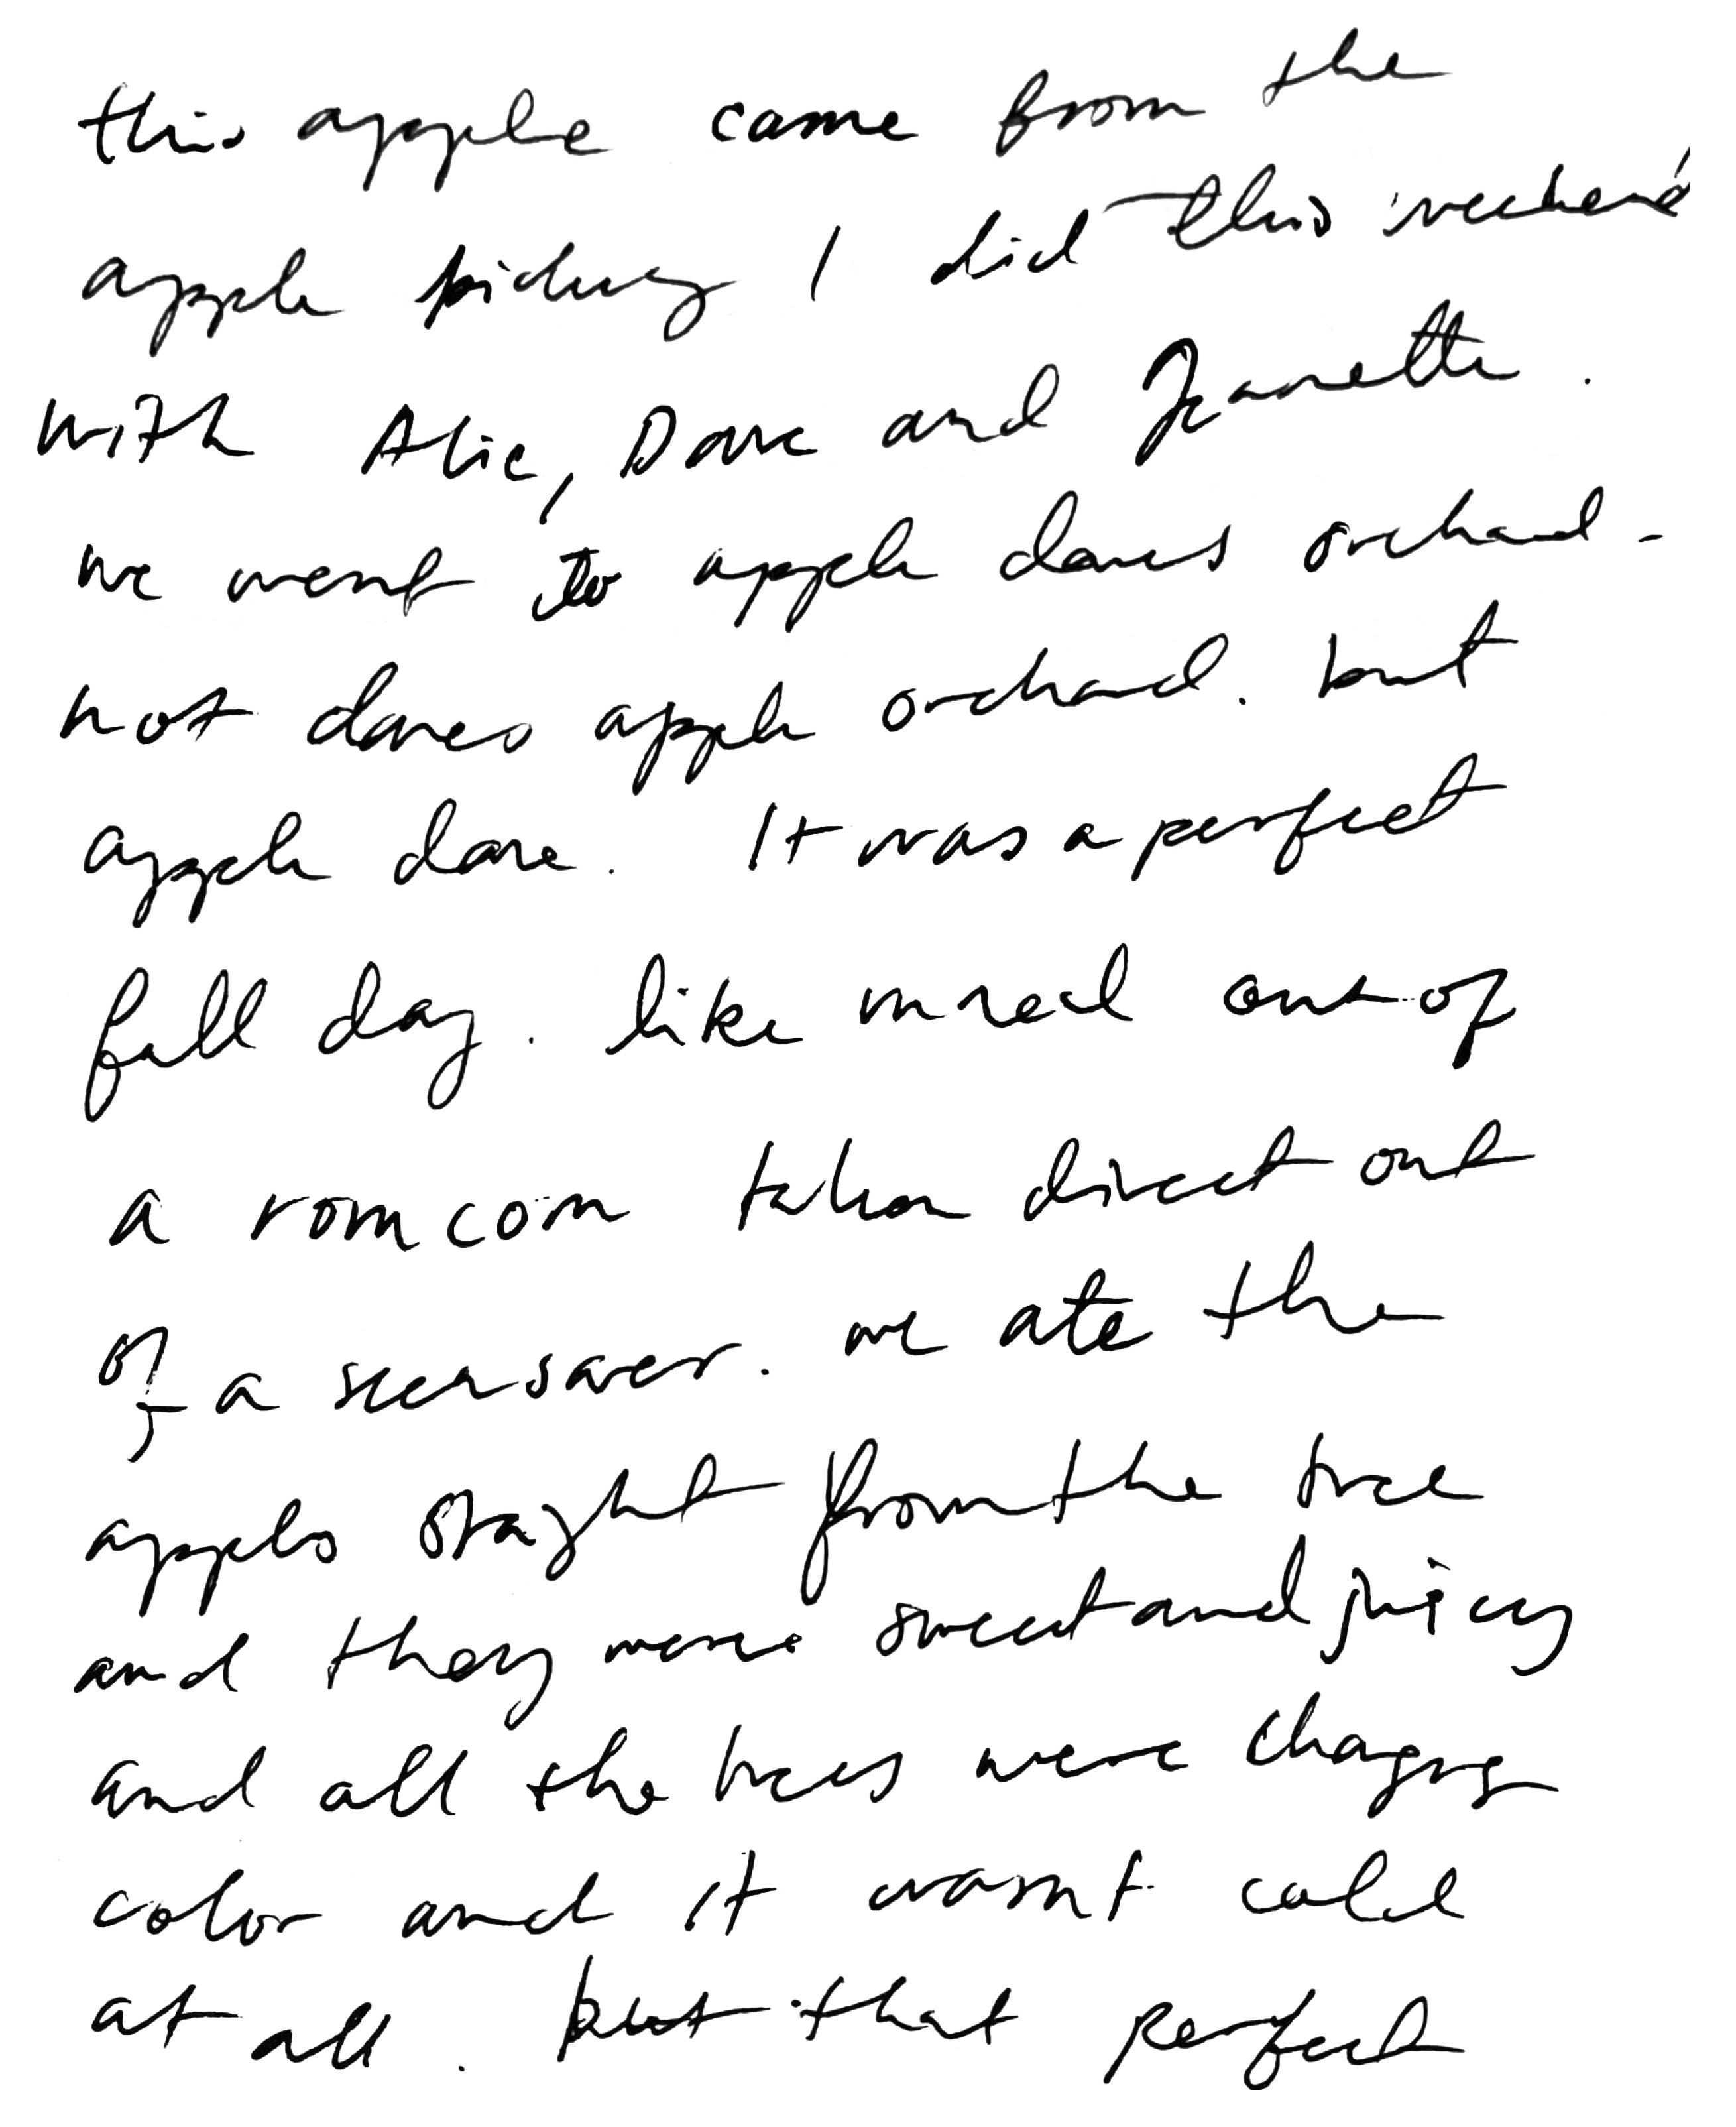 this apple came from the
apple picking I did this weekend
with Alie, Dave and Jeanette.
we went to apple daves orchard -
not daves apple orchard. but
apple dave. It was a perfect
fall day. like out of
a rom com taken direct out
of a screensaver. we ate the
apples straight from the tree
and they were sweet and juicy
and all the trees were changing
color and it wasnt cold
at all. but that perfect